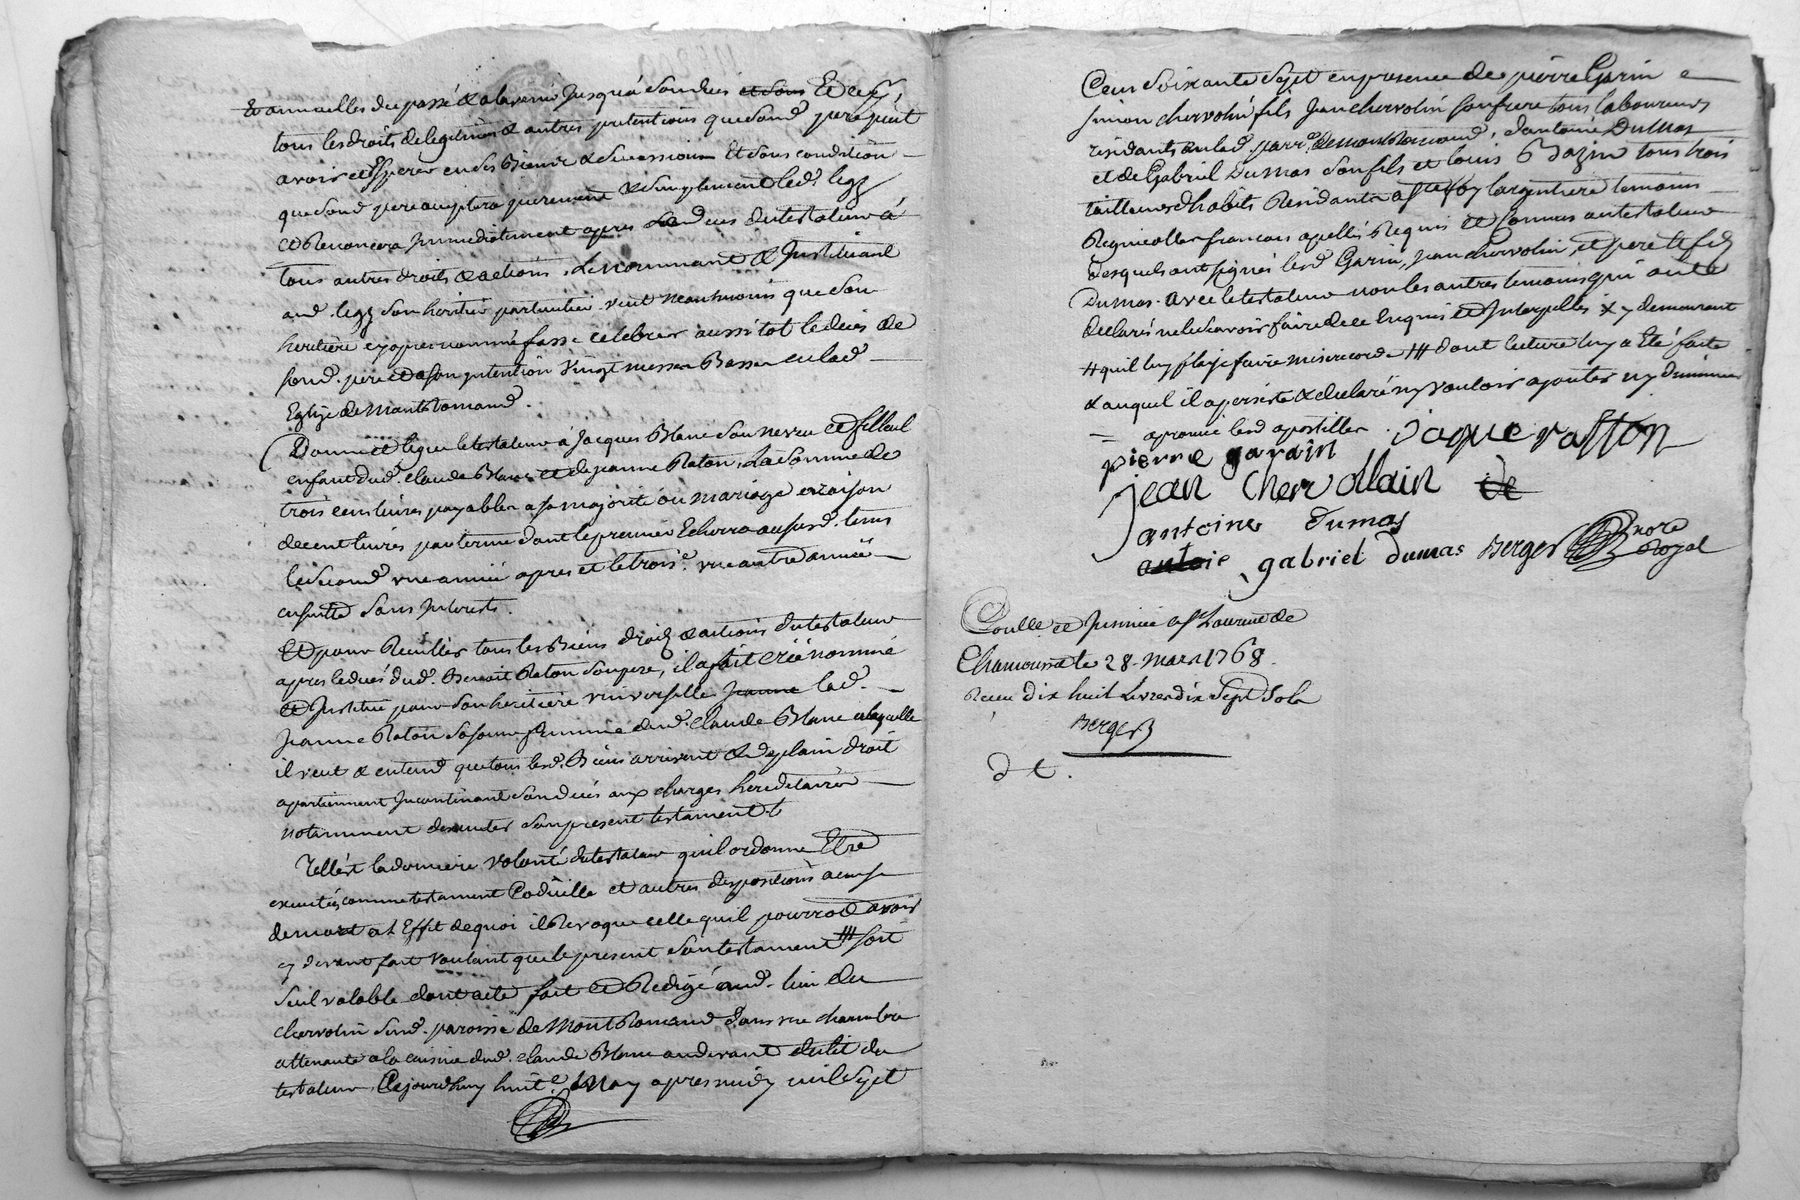 Et annuelles du passé & a lavenir jusqua son deces et sous Et ce p.r
tous les droits de legitime & autres pretentions que sond. pere peut
avoir et Esperer en ses Biens & succession Et sous condition
que sond pere acceptera purement & simplement led. legz
et Renoncera immediatement apres le deces du testateur à
tous autres droits & actions, le nommant & Instituant
aud. legz son heritier particulier veut neantmoins que son
heritiere cy apres nommé fasse celebrer aussitot le deces de
sond. pere et a son intention vingt messes Basses en lad.
Eglise de Montromand.
Donne et legue le testateur à Jacques Blanc son neveu et filleul
enfant dud. Claude Blanc et de jeanne Raton, la somme de
trois cens livres payables a sa majorité ou mariage a raison
de cent livres par terme dont le premier Echerra ausud. tems
le second une année apres et le trois.e une autre année
ensuitte sans Interets.
Et pour Recuillir tous les Biens droits & actions du testateur
apres le deces dud. Benoit Raton son pere, il a fait créé nommé
et Institué pour son heritiere universelle jeanne lad.
Jeanne Raton sa soeur femme dud. Claude Blanc a laquelle
il veut & entend que tous lesd. Biens arrivent & de plain droit
apartiennent Incontinant son deces aux charges hereditaires
notamment dexecuter son present testament
Telle est la derniere volonté du testateur quil ordonne Etre
executée comme testament Codicille et autres dispositions a cause
de mort a l Effet de quoi il Revoque celle quil pourroit avoir
cy devant fait voulant que le present son testament ### sort
seul valable dont acte fait et Redigé aud. lieu du
Chervolin sud. paroisse de Mont Romand dans une chambre
attenante a la cuisine dud. Claude Blanc au devant du lit du
testateur, Cejourdhuy huit.e May apres midy mil sept
Cent soixante sept en presence de pierre Garin
simon chervolin fils jean chervolin son frere tous laboureurs
residants en lad. parr.e de montromand, d'antoine Dumas
et de Gabriel Dumas son fils et louis Bazin tous trois
tailleurs d habits Residants a s.te foy largentiere temoins
Regnicolles francois apellés Requis et connus au testateur
desquels ont signés lesd Garin, jean chervolin, et pere et fils
Dumas. avec le testateur non les autres temoins qui ont
declarés ne le scavoir faire de ce Enquis et Interpellés X y demeurant
# quil luy plaise faire misericorde ### dont lecture luy a Eté faite
& auquel il a persisté & declaré ny vouloir ajouter ny diminuer
= aprouvé lesd apostilles. Jaque ratton
pierre garain
jean Chervollain de
antoine dumas
antoie gabriel dumas Berger no.re Royal
Controllé et Insinué a s.t Laurent de
Chamousset le 28. Mars 1768.
Recu dix huit Livres dix sept sols
Berger
d t.